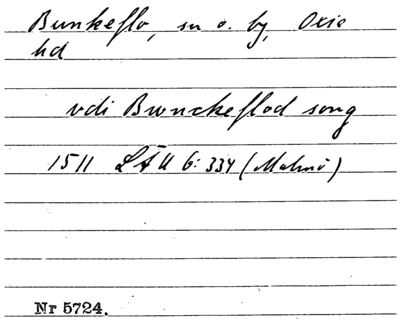 Bunkeflo, sn o. by, Oxie
hd
vdi Bwnckeflod song
1511 LÄU 6: 334 (Malmö)
Nr 5724.